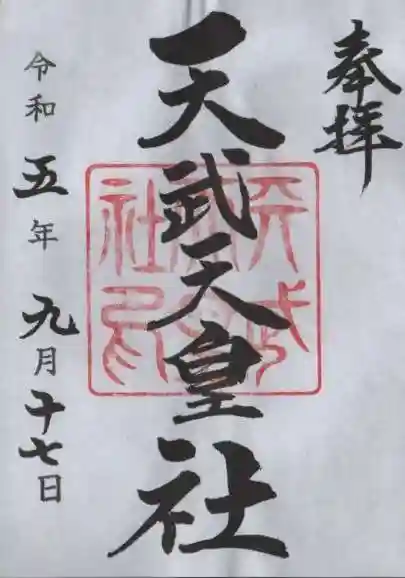 奉拝
天武天皇社
天武
神社
令和五年九月十七日